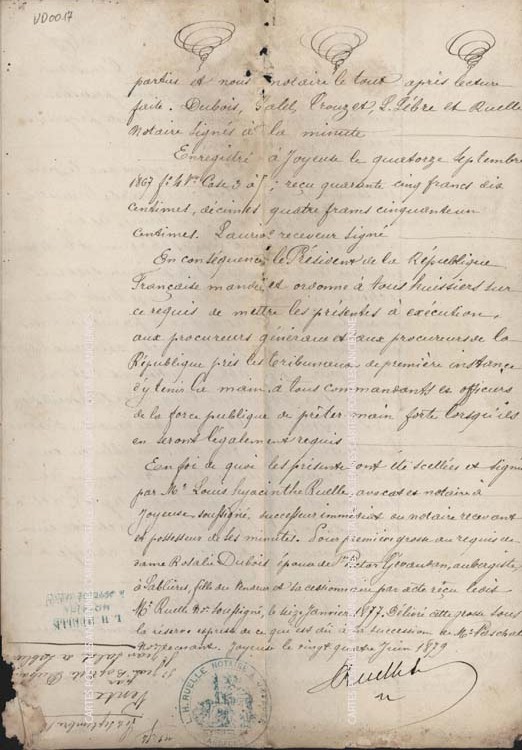 VD0017
parties et nous notaire le tout après lecture
faite. Dubois, Salel, Crouzet, L. Fèbre et Ruelle
Notaire signés à la minute
Enregistré à Joyeuse le quatorze Septembre
1867 f° 4 V° Case 3 à 5; reçu quarante cinq francs dix
centimes, décimes quatre francs cinquante un
centimes. receveur signé
En conséquence le Président de la République
Française mande et ordonne à tous huissiers sur
ce requis de mettre les présentes à exécution,
aux procureurs généraux et aux procureurs de la
République près les tribunaux de première instance
d'y tenir la main, à tous commandants et officiers
de la force publique de prêter main forte lorsqu'ils
en seront légalement requis
En foi de quoi les présentes ont été scellées et signées
par Me Louis Hyacinthe Ruelle, avocat et notaire à
Joyeuse soussigné, successeur immédiat du notaire recevant
et possesseur de ses minutes. Pour première grosse au requis de
dame Rosalie Dubois épouse de Sr Victor aubergiste
à Sablières, fille du vendeur et sa cessionnaire par acte reçu le dit
Me Ruelle Nre soussigné, le seize Janvier 1877. Délivré cette grosse sous
la réserve expresse de ce qui est dû à la succession de Me Paschal
Nre recevant. Joyeuse le vingt quatre Juin 1879
Ruelle
L. H. RUELLE
L. H. RUELLE NOTAIRE
Jean Salel à Sablières
par
Vente
Septembre